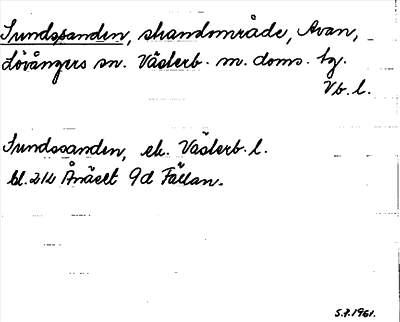 Sundssanden, strandområde, Avan,
Lövångers sn. Västerb. m. doms. tg.
Vb. l.
Sundssanden, ek. Västerb. l.
bl. 212 Ånäset 9d Fällan.
5.7.1961.